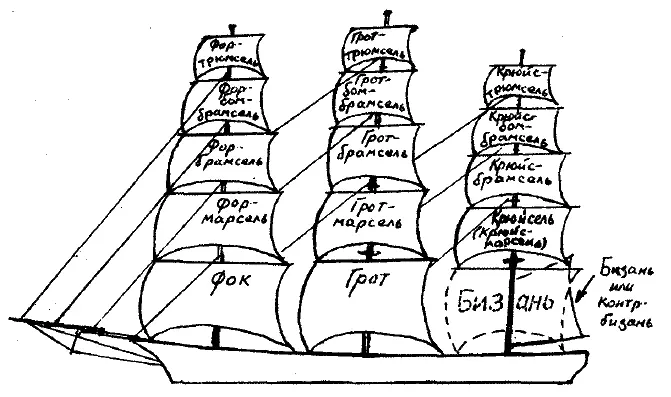 Фор-
трюмсель
Фор-
бом-
брамсель
Фор-
брамсель
Фор-
марсель
Фок
Грот-
трюмсель
Грот-
бом-
брамсель
Грот-
брамсель
Грот-
марсель
Грот
Крюйс-
трюмсель
Крюйс-
бом-
брамсель
Крюйс-
брамсель
Крюйсель
(Крюйс-
марсель)
Бизань
Бизань
или
контр-
бизань